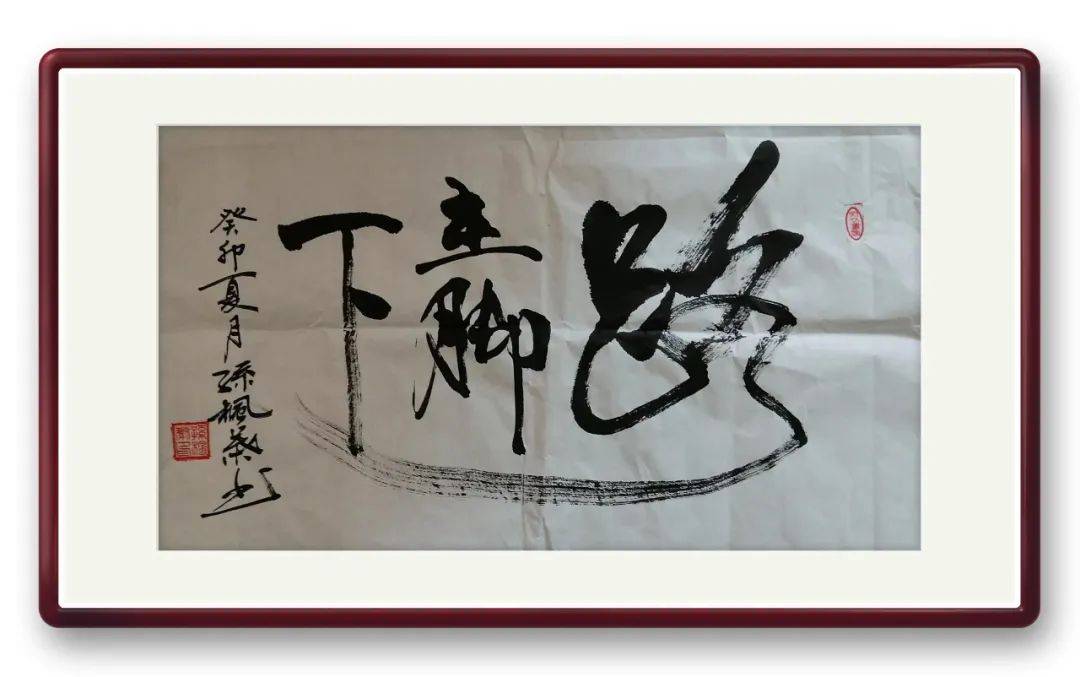 路在脚下
癸卯夏月孫楓葉书